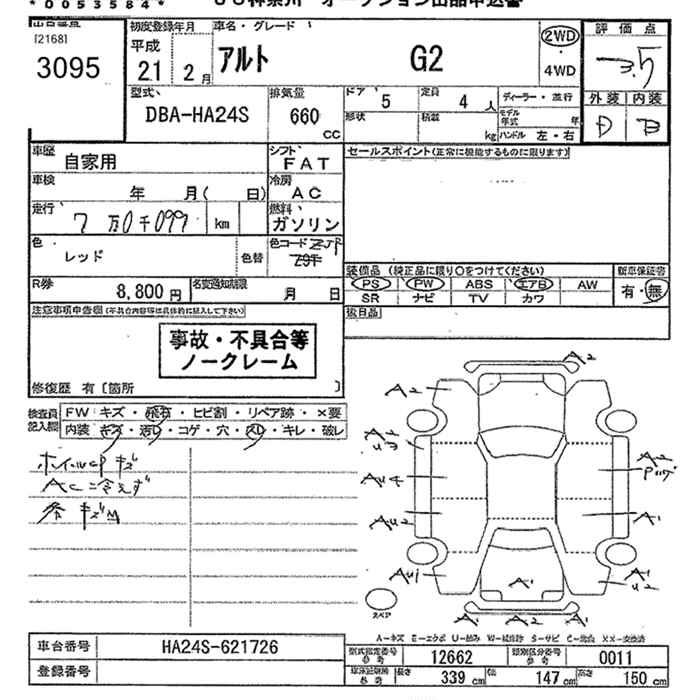 * 0 0 5 3 5 8 4 *
[2168]
3095
初度登録年月
平成
21 2 月
車名・グレード
アルト G2
2WD
・
4WD
評価点
3.5
外装 内装
D B
型式
DBA-HA24S
排気量
660
cc
ドア 5 定員 4 人
形状 積載 kg
ディーラー・並行
モデル年式 年
ハンドル 左・右
車歴 自家用
シフト FAT
車検 年 月( 日)
冷房 AC
走行 7 万0千099 km
燃料 ガソリン
色 レッド 色替
色コード ZJP
R券 8,800 円
名変通知期限 月 日
セールスポイント(正常に機能するものに限ります)
装備品 (純正品に限り○をつけてください)
PS PW ABS エアB AW
SR ナビ TV カワ
新車保証書
有・無
後日品
注意事項申告欄 (不具合内容等は具体的に記入して下さい)
事故・不具合等
ノークレーム
修復歴 有〔箇所 〕
検査員記入欄
FW キズ・飛石・ヒビ割・リペア跡・×要
内装 キズ・汚レ・コゲ・穴・スレ・キレ・破レ
ホイルcP キズ
AC冷えず
各キズM
A2
A2
A2
A2
Au4
Au2
A1
Au1
A1
A1
u2
A2 A2 A2
スペア
A-キズ E-エクボ U-凹み W-補修跡 S-サビ C-腐食 XX-交換済
車台番号 HA24S-621726
登録番号
型式指定番号 参考 12662
類別区分番号 参考 0011
長さ 339 cm 幅 147 cm 高さ 150 cm